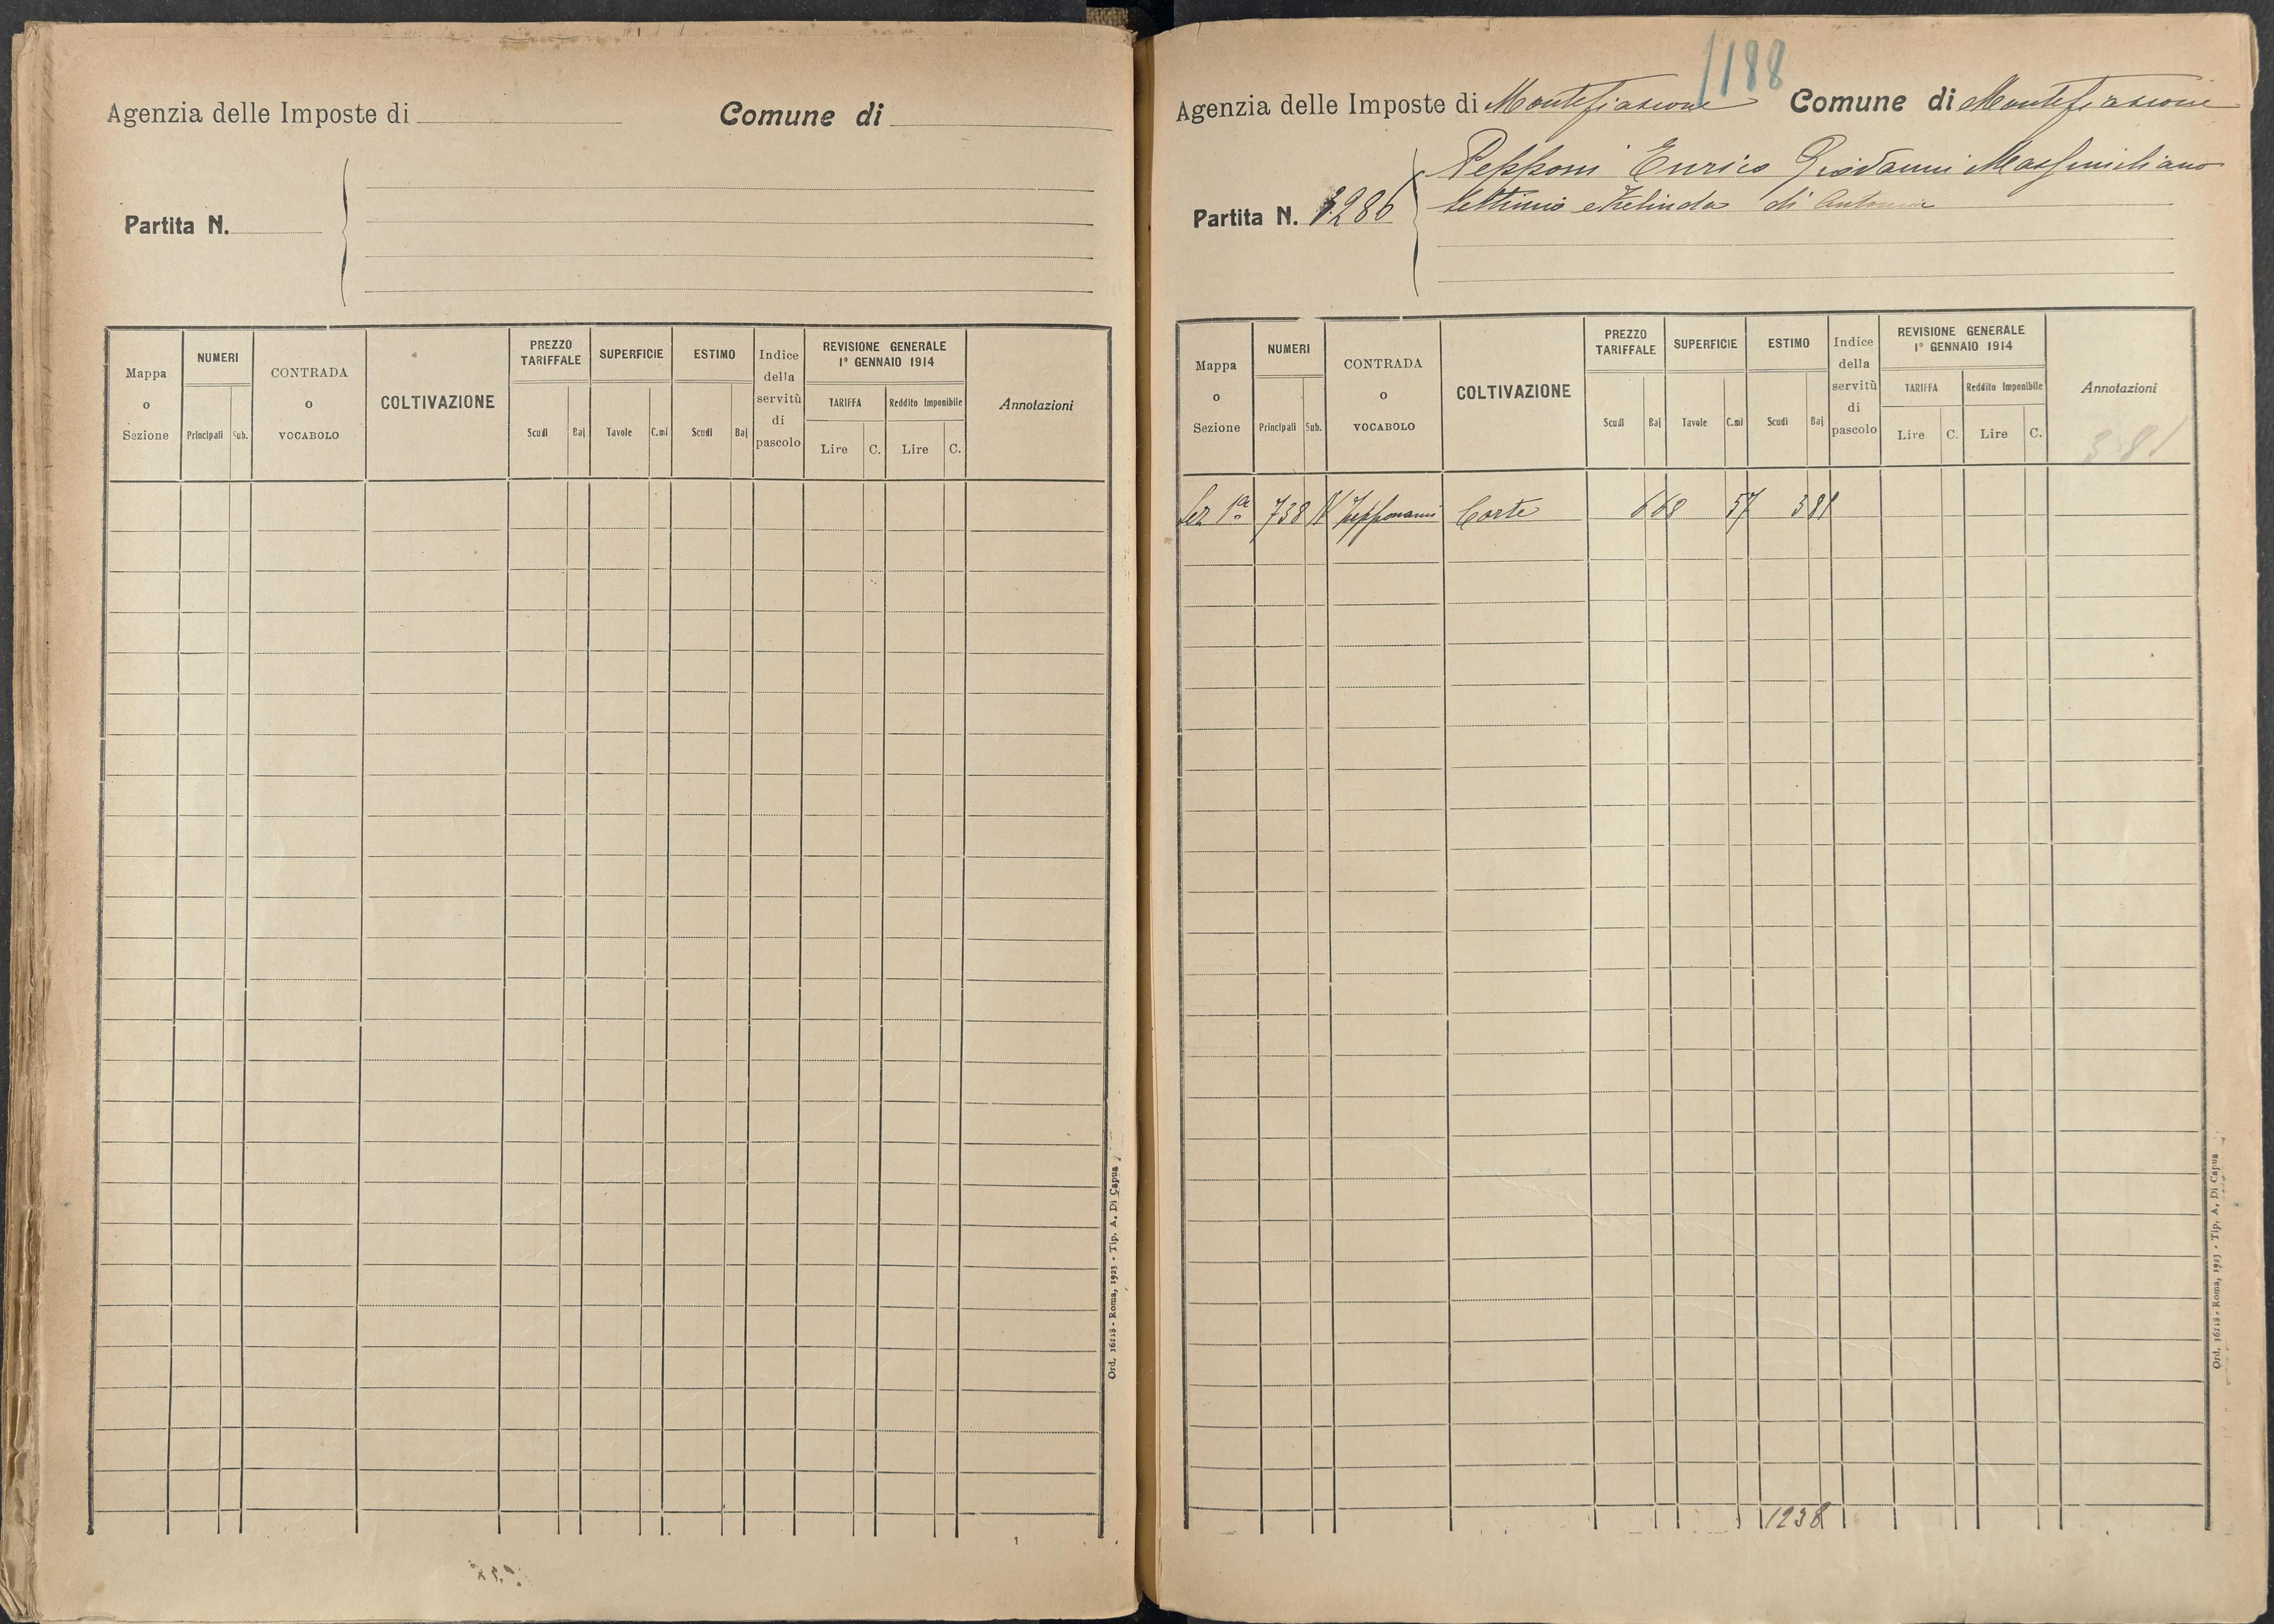 Agenzia delle Imposte di Comune di
Partita N.
Mappa o Sezione
NUMERI
Principali Sub.
CONTRADA o VOCABOLO
COLTIVAZIONE
PREZZO TARIFFALE
Scudi Baj
SUPERFICIE
Tavole C.mi
ESTIMO
Scudi Baj
Indice della servitù di pascolo
REVISIONE GENERALE
1° GENNAIO 1914
TARIFFA Reddito Imponibile
Lire C. Lire C.
Annotazioni
Ord. 16118 - Roma, 1923 - Tip. A. Di Capua
1
1188
Agenzia delle Imposte di Montefiascone Comune di Montefiascone
Pepponi Enrico Giovanni Massimiliano
Partita N. 3286 Settimio di Antonio
Mappa o Sezione
NUMERI
Principali Sub.
CONTRADA o VOCABOLO
COLTIVAZIONE
PREZZO TARIFFALE
Scudi Baj
SUPERFICIE
Tavole C.mi
ESTIMO
Scudi Baj
Indice della servitù di pascolo
REVISIONE GENERALE
1° GENNAIO 1914
TARIFFA Reddito Imponibile
Lire C. Lire C.
Annotazioni
381
Sez 1a 738 Corte 668 57 381
1238
Ord. 16118 - Roma, 1923 - Tip. A. Di Capua